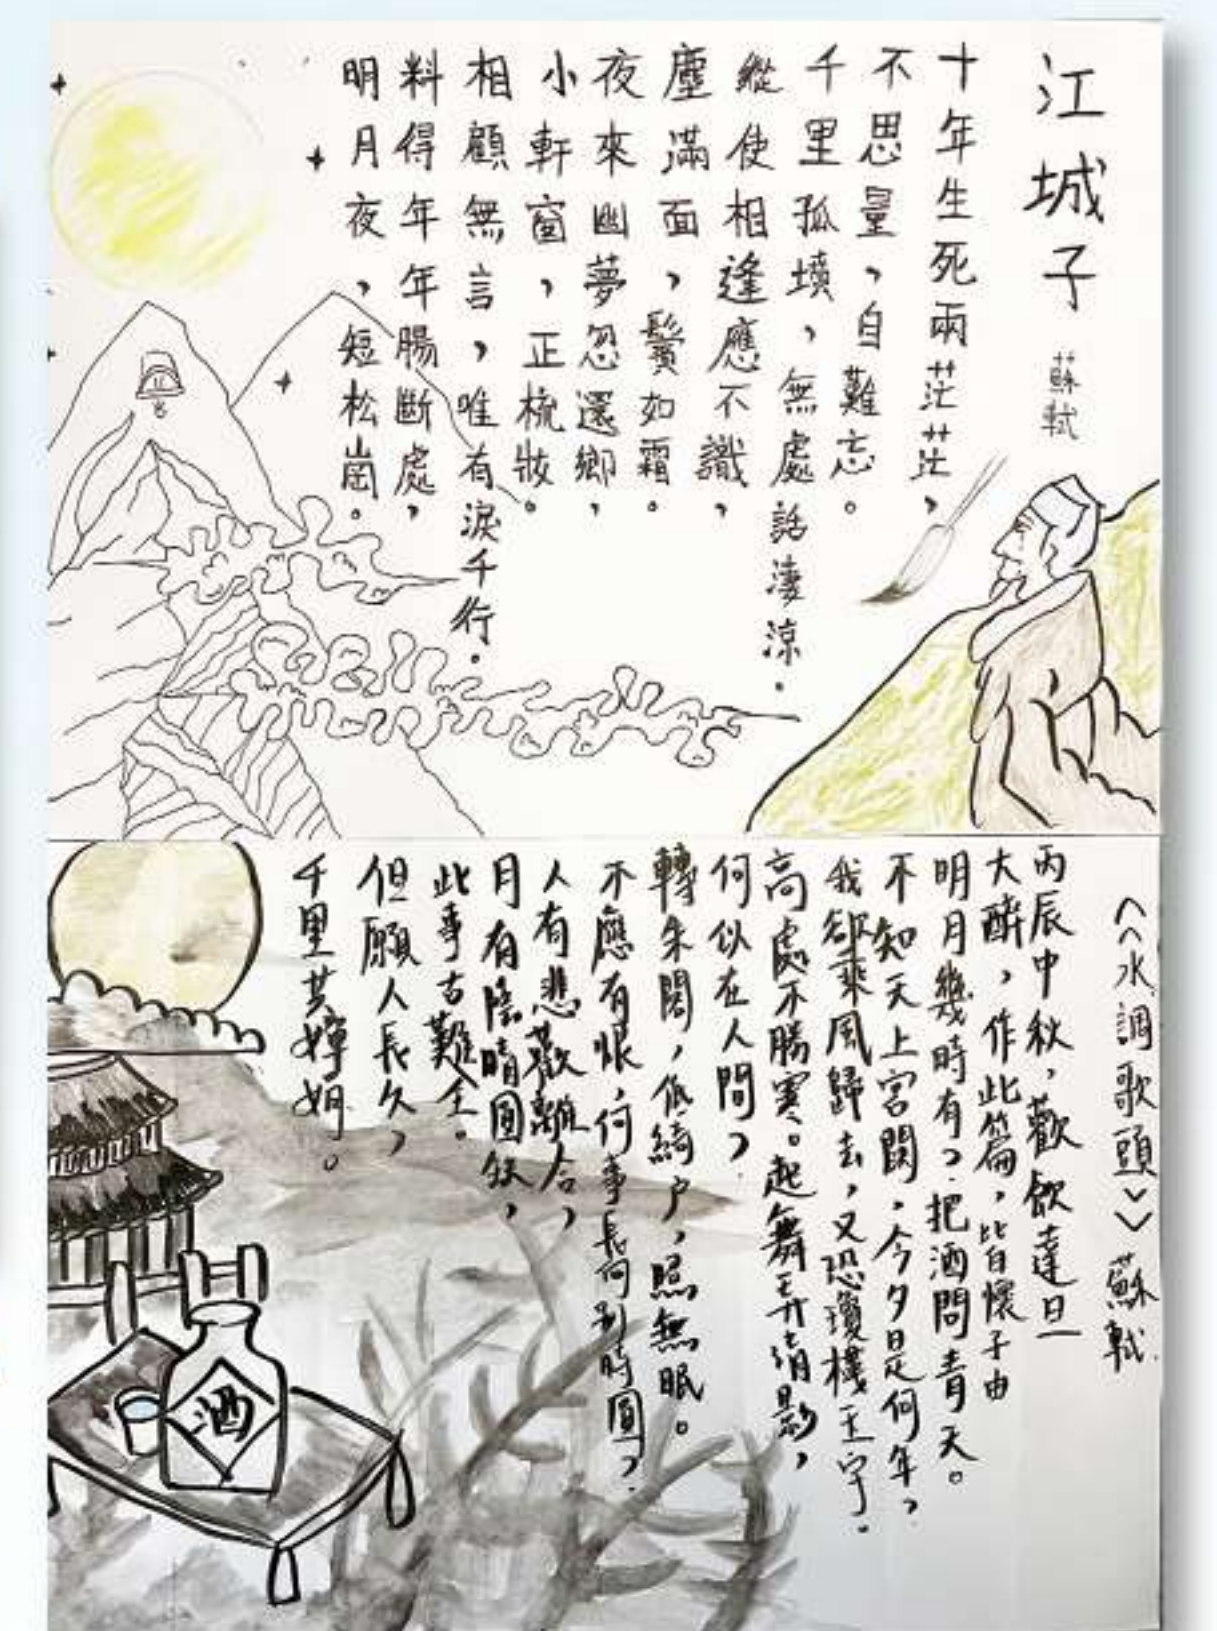 江城子 蘇軾
十年生死兩茫茫，
不思量，自難忘。
千里孤墳，無處話淒涼。
縱使相逢應不識，
塵滿面，鬢如霜。
夜來幽夢忽還鄉，
小軒窗，正梳妝。
相顧無言，唯有淚千行。
料得年年腸斷處，
明月夜，短松崗。
《水調歌頭》蘇軾
丙辰中秋，歡飲達旦
大醉，作此篇，皆自懷子由
明月幾時有？把酒問青天。
不知天上宮闕，今夕是何年，
我卻乘風歸去，又恐瓊樓玉宇。
高處不勝寒。起舞弄清影，
何似在人間？
轉朱閣，低綺戶，照無眠。
不應有恨，何事長向別時圓？
人有悲歡離合，
月有陰晴圓缺，
此事古難全。
但願人長久，
千里共嬋娟。
酒